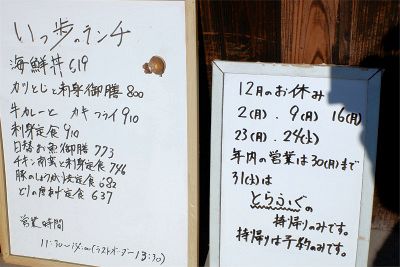 いっ歩のランチ
海鮮丼 619
カツとじと刺身御膳 800
牛カレーと カキフライ 910
刺身定食 910
日替お魚御膳 773
チキン南蛮と刺身定食 746
豚のしょうが焼定食 682
とりの唐揚げ定食 637
営業時間
11:30~14:00(ラストオーダー13:30)
12月のお休み
2(月). 9(月) 16(月)
23(月). 24(火)
年内の営業は30(月)まで
31(火)は
とらふぐの
持帰りのみです。
持帰りは予約のみです。